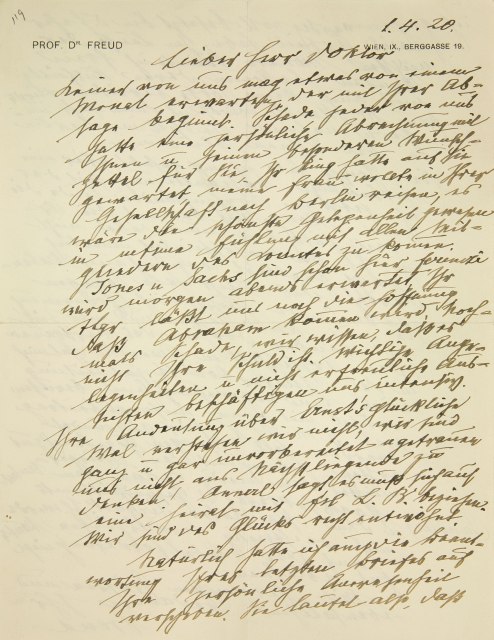 119
1. 4. 20.
PROF. DR FREUD
WIEN, IX., BERGGASSE 19.
Lieber Herr Doktor
Keiner von uns mag etwas von einem
Monat erwarten, der mit Ihrer Ab-
sage beginnt. Schade jeder von uns
hatte eine persönliche Abrechnung mit
Ihnen u seinen besonderen Wunsch-
zettel für Sie. Ihr Ring hatte auf Sie
gewartet meine Frau wollte in Ihrer
Gesellschaft nach Berlin reisen, es
wäre die schönste Gelegenheit gewesen
in intime Fühlung mit allen Mit-
gliedern des Komites zu kommen.
Jones u Sachs sind schon hier, Ferenczi
wird morgen abends erwartet, Ihr
Tlgr läßt uns noch die Hoffnung
daß Abraham kommen wird. Noch-
mals Schade, wir wissen, daß es
nicht Ihre Schuld ist. Wichtige Ange-
legenheiten u nicht erfreuliche Aus-
sichten beschäftigen uns intensiv.
Ihre Andeutung über Ernst's glückliche
Wal verstehen wir nicht, wir sind
ganz u gar unvorbereitet u getrauen
uns nicht, ans Nächstliegende zu
denken. Annerl sagt, es muß sich auf
eine Heirat mit Frl L. B. beziehen.
Wir sind des Glücks recht entwöhnt.
Natürlich hatte ich auch die Beant-
wortung Ihres letzten Briefes auf
Ihre persönliche Anwesenheit
verschoben. Sie lautet also, daß